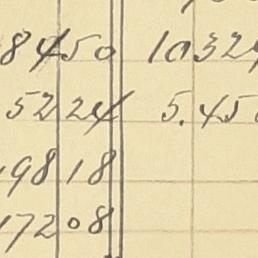 84 50 1032
52 24 5.45
98 18
172 08